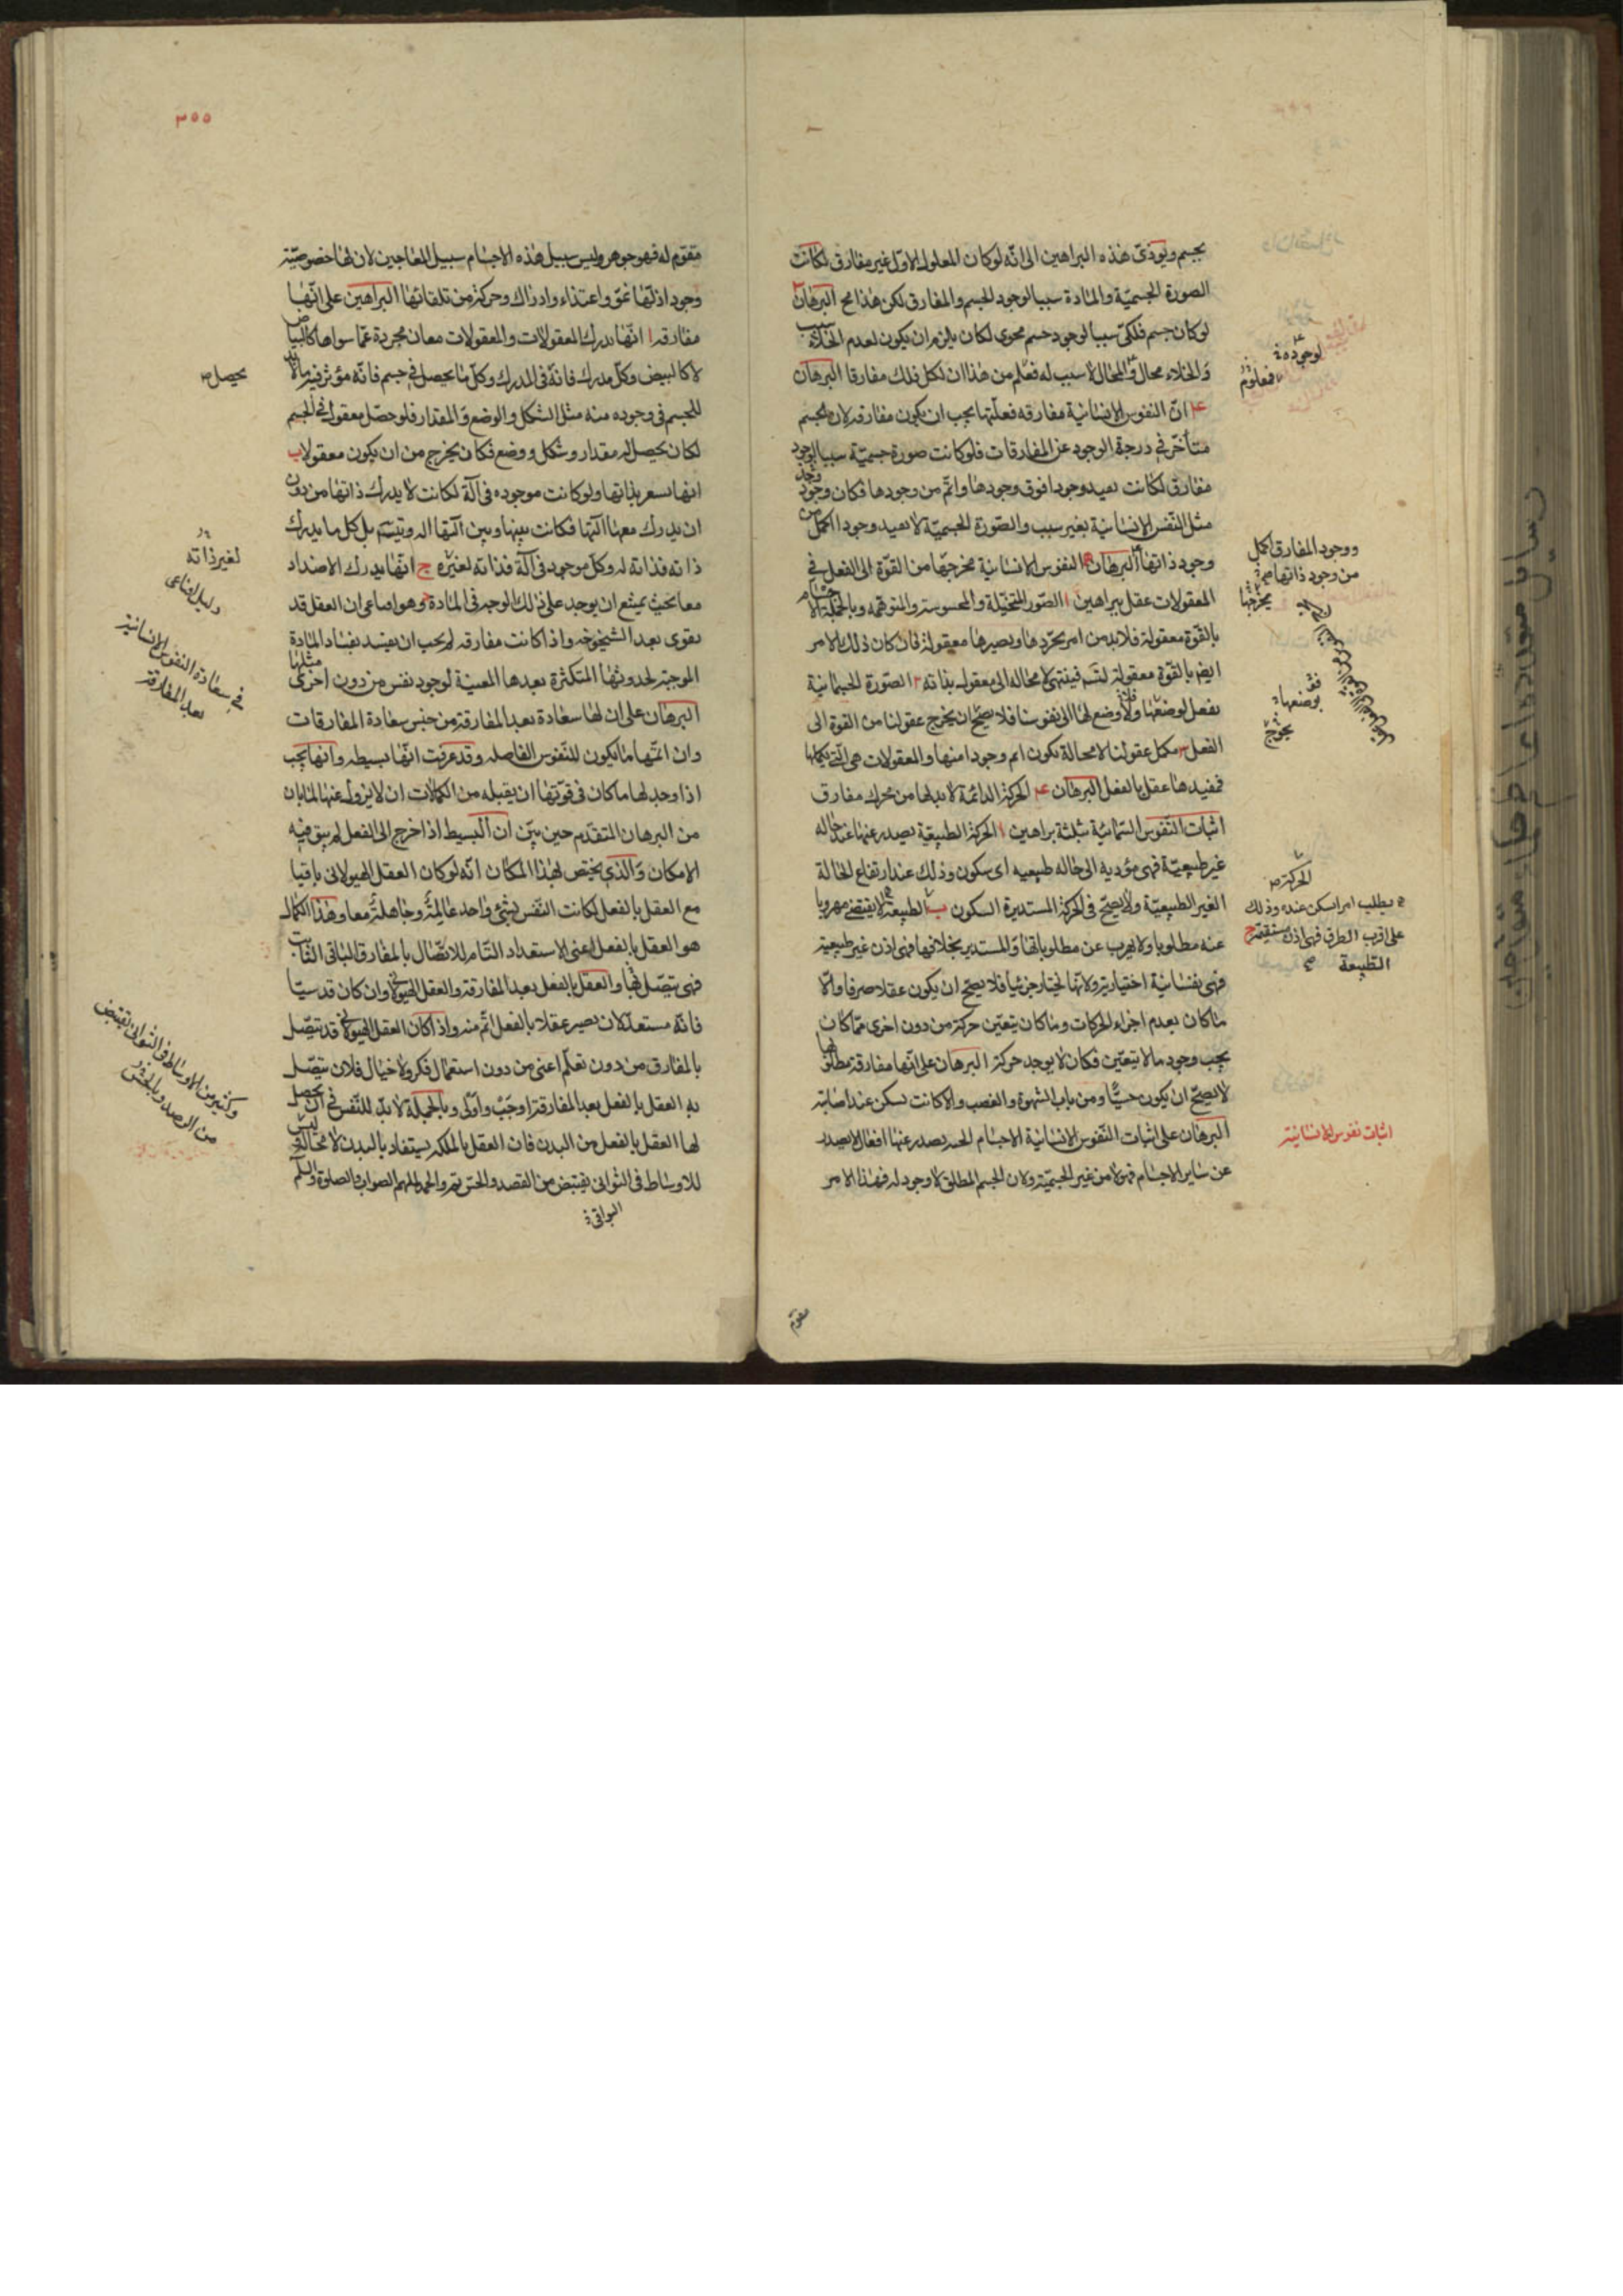 بجسم ويؤدى هذه البراهين الى انه لو كان المعلول الاول غير مفارق لكانت
الصورة الجسمية والمادة سببا لوجود الجسم والمفارق لكن هذا مح البرهان
لو كان جسم فلكى سببا لوجود جسم محوى لكان يلزم ان يكون لعدم الخلاء سبب
والخلاء محال والمحال لا سبب له فعلم من هذا ان لكل فلك مفارقا البرهان
ان النفوس الانسانية مفارقه فعلتها يجب ان يكون مفارقه لان الجسم
متأخر فى درجة الوجود عن المفارقات فلو كانت صورة جسمية سببا لوجود
مفارق لكانت تفيد وجودا فوق وجودها واتم من وجودها فكان وجود
مثل النفس الانسانية بغير سبب والصورة الجسمية لا تفيد وجودا اكمل من
وجود ذاتها البرهان النفوس الانسانية مخرجها من القوة الى الفعل فى
المعقولات عقل ببراهين ا الصور المتخيلة والمحسوسة والمتوهمه وبالجملة الاجسام
بالقوة معقولة فلا بد من امر يجردها ويصيرها معقولة فان كان ذلك الامر
ايض بالقوة معقولة فينتهى لا محاله الى معقول بذاته ٢ الصورة الجسمانية
تفعل لوضعها ولا وضع لها الى نفوسنا فلا يصح ان يخرج عقولنا من القوة الى
الفعل ٣ مكمل عقولنا لا محالة يكون اتم وجودا منها والمعقولات هى التى تكملها
فمفيدها عقل بالفعل البرهان ع‍ الحركة الدائمة لا بد لها من محرك مفارق
اثبات النفوس السمائية بثلثة براهين ا الحركة الطبيعية يصدر عنها عند حاله
غير طبيعية فهى مؤدية الى حاله طبيعيه اى سكون وذلك عند ارتفاع الحالة
الغير الطبيعية ولا يصح فى الحركة المستديرة السكون ب الطبيعة لا يقتضى مهروبا
عنه مطلوبا ولا يهرب عن مطلوباتها والمستدير بخلافها فهى اذن غير طبيعية
فهى نفسانية اختيارية ولانها تختار جزئيا فلا يصح ان يكون عقلا صرفا والا
ما كان يعدم اجزاء الحركات وما كان يتعين حركة من دون اخرى مما كان
يجب وجود ما لا يتعين فكان لا يوجد حركة البرهان على انها مفارقة مطلقا
لا يصح ان يكون حسيا ومن باب الشهوة والغضب والا كانت تسكن عند اصابته
البرهان على اثبات النفوس الانسانية الاجسام الحيه يصدر عنها افعال لا يصدر
عن ساير الاجسام فهو لامر غير الجسمية ولان الجسم المطلق لا وجود له فهذا الامر
مقوم
لوجوده
فمعلوم
ووجود المفارق اكمل
من وجود ذاتها
مخرجها
بوضعها
يخرج
الحركة
يطلب امرا سكن عنده وذلك
على اقرب الطرق فهى اذن مستقيمة
الطبيعة
اثبات نفوس الانسانية
٣٥٥
متقوم له فهو جوهر وليس سبيل هذه الاجسام سبيل المعاجين لان لها خصوصية
وجود اذ لها نمو واغتذاء وادراك وحركة من تلقائها البراهين على انها
مفارقه ا انها تدرك المعقولات والمعقولات معان مجردة عما سواها كالبياض
لا كالبيض وكل مدرك فانه فى المدرك وكل ما يحصل فى جسم فانه مؤثر فيه ما لا بد
للجسم فى وجوده منه مثل الشكل والوضع والمقدار فلو حصل معقول فى الجسم
لكان يحصل له مقدار وشكل ووضع فكان يخرج من ان يكون معقولا ب
انها تشعر بذاتها ولو كانت موجوده فى آلة لكانت لا يدرك ذاتها من دون
ان يدرك معها آلتها فكانت بينها وبين آلتها آله ويتسم بل كل ما يدرك
ذاته فذاته له وكل موجود فى آلة فذاته لغيره ج انها يدرك الاضداد
معا بحيث يمتنع ان يوجد على ذلك الوجه فى المادة وهو اقناعى ان العقل قد
يقوى بعد الشيخوخه واذا كانت مفارقه لم يجب ان يفسد بفساد المادة
الموجبة لحدوثها المتكثرة بعدها المعينة لوجود نفس من دون اخرى مثلها
البرهان على ان لها سعادة بعد المفارقة من جنس سعادة المفارقات
وان اتمها ما يكون للنفوس الفاضله وقد عرفت انها بسيطه وانها يجب
اذا وجد لها ما كان فى قوتها ان يقبله من الكمالات ان لا يزول عنها لما بان
من البرهان المتقدم حين بين ان البسيط اذا خرج الى الفعل لم يبق فيه
الامكان والذى يختص بهذا المكان انه لو كان العقل الهيولانى باقيا
مع العقل بالفعل لكانت النفس بشئ واحد عالمة وجاهلة معا وهذا الكمال
هو العقل بالفعل اعنى الاستعداد التام للاتصال بالمفارق الباقى الثابت
فهى تتصل بها والعقل بالفعل بعد المفارقة والعقل الهيولانى وان كان قدسيا
فانه مستعد لان يصير عقلا بالفعل اتم منه واذا كان العقل الهيولانى قد يتصل
بالمفارق من دون تعلم اعنى من دون استعمال فكر ولا خيال فلان يتصل
به العقل بالفعل بعد المفارقة اوجب واولى وبالجملة لا بد للنفس فى ان يحصل
لها العقل بالفعل من البدن فان العقل بالملكه يستفاد بالبدن لا محالة وليس
للاوساط فى الثوانى يقتبض من القصد والحس تم والحمد لملهم الصواب والصلوة والسلم
البواقى
يحصل
لغير ذاته
دليل اقناعى
فى سعادة النفوس الانسانية
بعد المفارقة
وكثير من الاوساط فى الثوانى يقتبض
من الرصد وبالحس